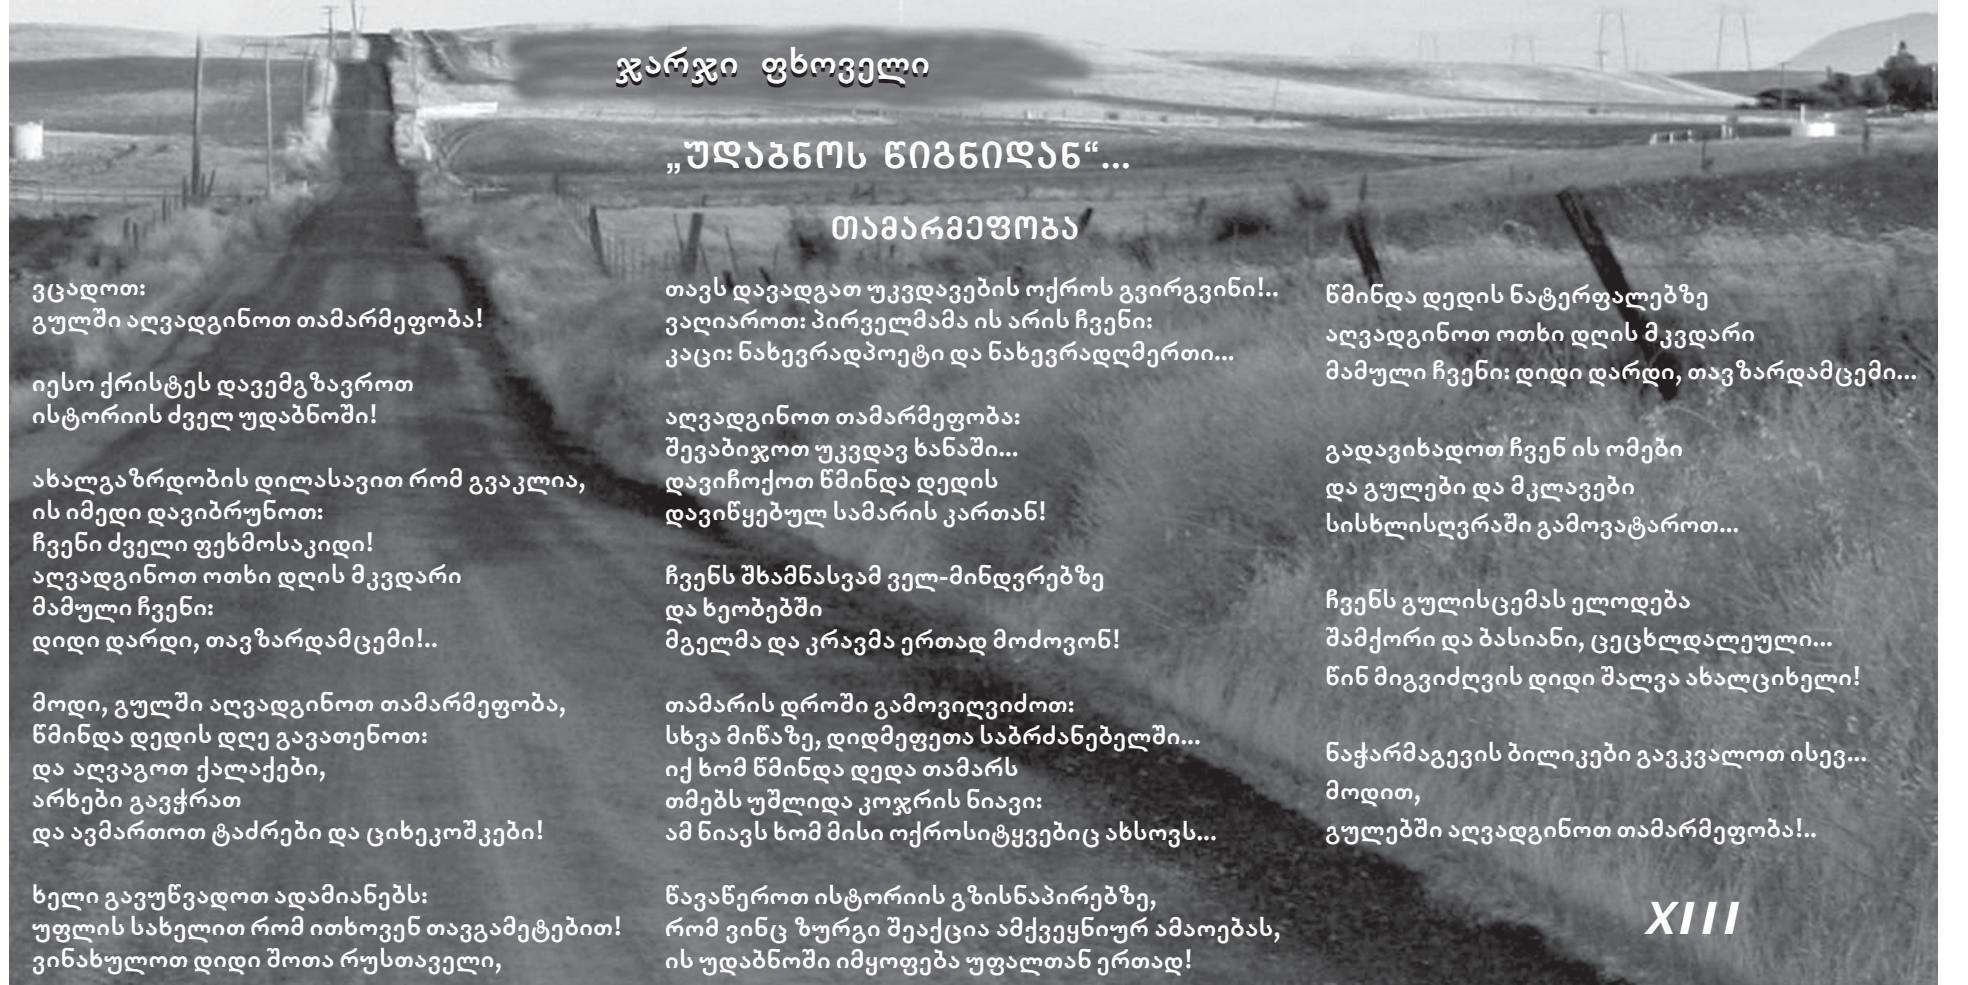 ჯარჯი ფხოველი
„უდაბნოს წიგნიდან“...
თამარმეფობა
ვცადოთ:
გულში აღვადგინოთ თამარმეფობა!
იესო ქრისტეს დავემგზავროთ
ისტორიის ძველ უდაბნოში!
ახალგაზრდობის დილასავით რომ გვაკლია,
ის იმედი დავიბრუნოთ:
ჩვენი ძველი ფეხმოსაკიდი!
აღვადგინოთ ოთხი დღის მკვდარი
მამული ჩვენი:
დიდი დარდი, თავზარდამცემი!..
მოდი, გულში აღვადგინოთ თამარმეფობა,
წმინდა დედის დღე გავათენოთ:
და აღვაგოთ ქალაქები,
არხები გავჭრათ
და ავმართოთ ტაძრები და ციხეკოშკები!
ხელი გავუწვადოთ ადამიანებს:
უფლის სახელით რომ ითხოვენ თავგამეტებით!
ვინახულოთ დიდი შოთა რუსთაველი,
თავს დავადგათ უკვდავების ოქროს გვირგვინი!..
ვაღიაროთ: პირველმამა ის არის ჩვენი:
კაცი: ნახევრადპოეტი და ნახევრადღმერთი...
აღვადგინოთ თამარმეფობა:
შევაბიჯოთ უკვდავ ხანაში...
დავიჩოქოთ წმინდა დედის
დავიწყებულ სამარის კართან!
ჩვენს შხამნასვამ ველ-მინდვრებზე
და ხეობებში
მგელმა და კრავმა ერთად მოძოვონ!
თამარის დროში გამოვიღვიძოთ:
სხვა მიწაზე, დიდმეფეთა საბრძანებელში...
იქ ხომ წმინდა დედა თამარს
თმებს უშლიდა კოჯრის ნიავი:
ამ ნიავს ხომ მისი ოქროსიტყვებიც ახსოვს...
წავაწეროთ ისტორიის გზისნაპირებზე,
რომ ვინც ზურგი შეაქცია ამქვეყნიურ ამაოებას,
ის უდაბნოში იმყოფება უფალთან ერთად!
წმინდა დედის ნატერფალებზე
აღვადგინოთ ოთხი დღის მკვდარი
მამული ჩვენი: დიდი დარდი, თავზარდამცემი...
გადავიხადოთ ჩვენ ის ომები
და გულები და მკლავები
სისხლისღვრაში გამოვატაროთ...
ჩვენს გულისცემას ელოდება
შამქორი და ბასიანი, ცეცხლდალეული...
წინ მიგვიძღვის დიდი შალვა ახალციხელი!
ნაჭარმაგევის ბილიკები გავკვალოთ ისევ...
მოდით,
გულებში აღვადგინოთ თამარმეფობა!..
XIII